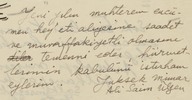 Yeni yılın muhterem encü-
men hey'eti âliyesine saadet
ve muvaffakiyetli olmasını
temenni eder hürmet-
lerimin kabulünü istirham
eylerim. Yüksek Mimar
Ali Saim Ülgen